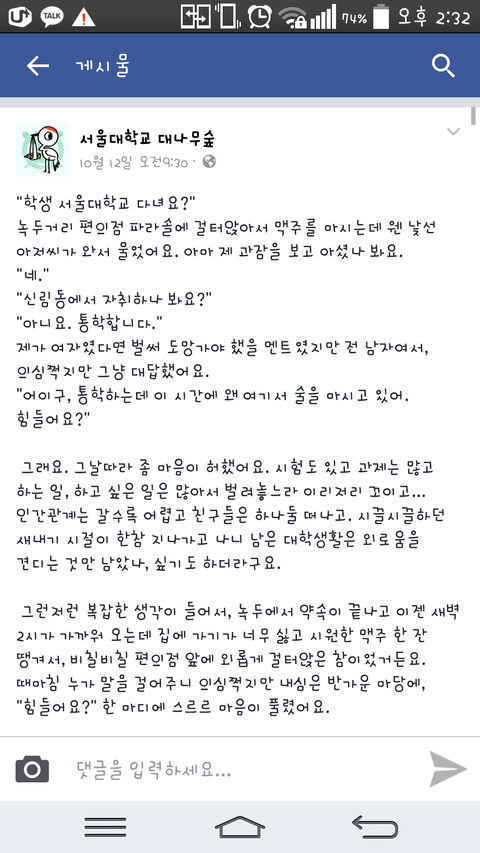 TALK
74%
오후 2:32
게시물
서울대학교 대나무숲
10월 12일 오전9:30 ·
"학생 서울대학교 다녀요?"
녹두거리 편의점 파라솔에 걸터앉아서 맥주를 마시는데 웬 낯선
아저씨가 와서 물었어요. 아마 제 과잠을 보고 아셨나 봐요.
"네."
"신림동에서 자취하나 봐요?"
"아니요. 통학합니다."
제가 여자였다면 벌써 도망가야 했을 멘트였지만 전 남자여서,
의심쩍지만 그냥 대답했어요.
"어이구, 통학하는데 이 시간에 왜 여기서 술을 마시고 있어.
힘들어요?"
그래요. 그날따라 좀 마음이 허했어요. 시험도 있고 과제는 많고
하는 일, 하고 싶은 일은 많아서 벌려놓느라 이리저리 꼬이고...
인간관계는 갈수록 어렵고 친구들은 하나둘 떠나고. 시끌시끌하던
새내기 시절이 한참 지나가고 나니 남은 대학생활은 외로움을
견디는 것만 남았나, 싶기도 하더라구요.
그런저런 복잡한 생각이 들어서, 녹두에서 약속이 끝나고 이젠 새벽
2시가 가까워 오는데 집에 가기가 너무 싫고 시원한 맥주 한 잔
땡겨서, 비칠비칠 편의점 앞에 외롭게 걸터앉은 참이었거든요.
때마침 누가 말을 걸어주니 의심쩍지만 내심은 반가운 마당에,
"힘들어요?" 한 마디에 스르르 마음이 풀렸어요.
댓글을 입력하세요...